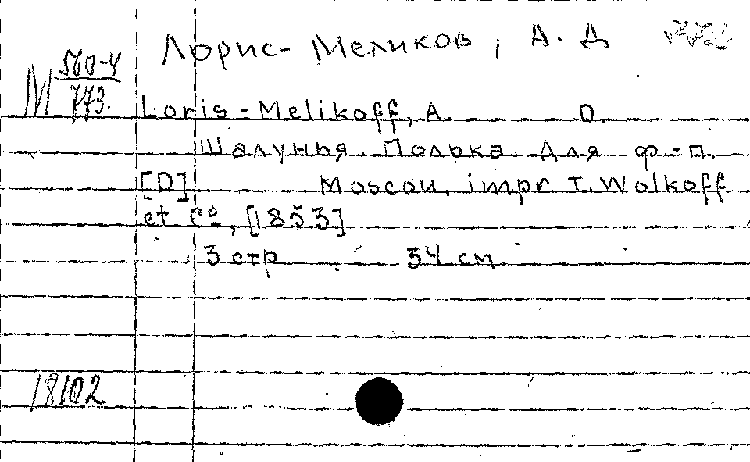 Лорис-Меликов, А. Д
М 560-4
773.
Loris-Melikoff, A. D.
Шалунья. Полька для ф-п.
[D] Moscou, impr T. Wolkoff
et Cº, [1853]
3 стр 34 см
18102